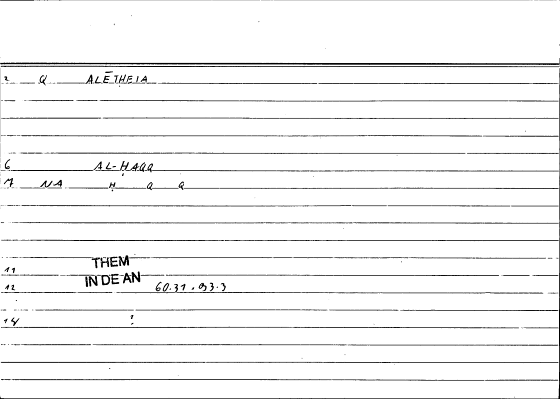 2 Q ALĒTHEIA
6 AL-ḤAQQ
7 NA Ḥ Q Q
11 THEM
12 IN DE AN 60.31.93.3
14 ?